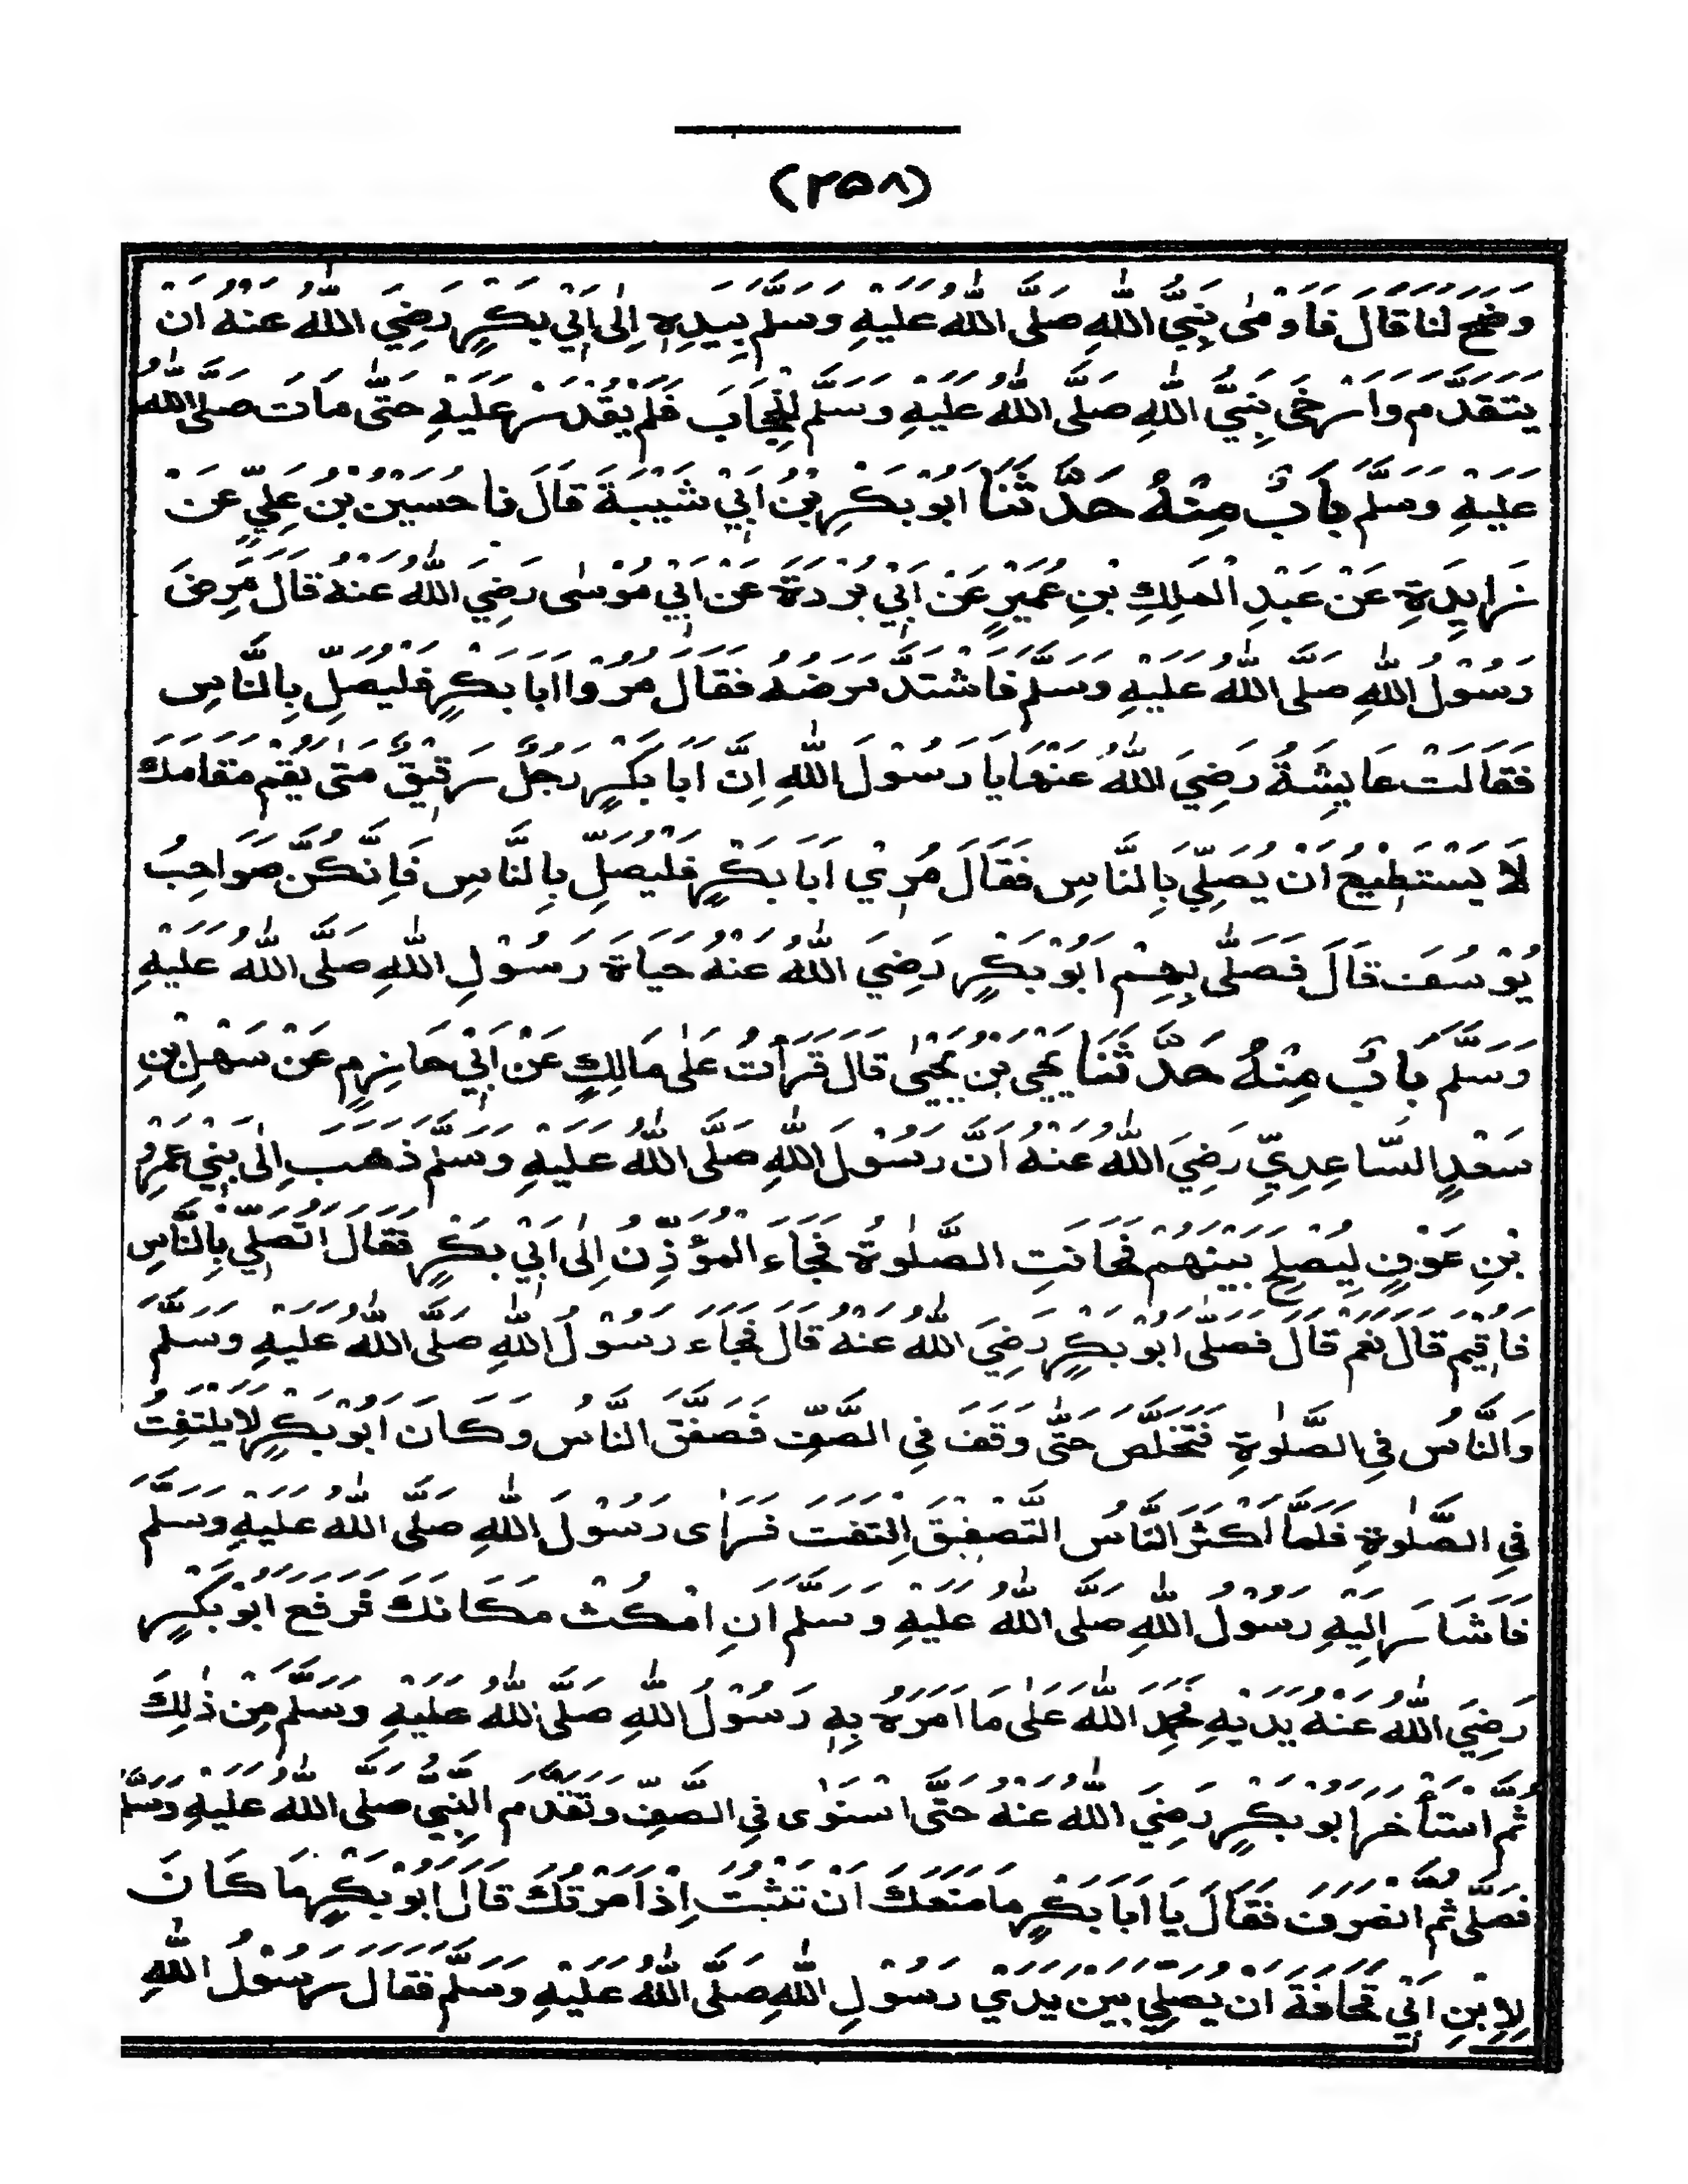 (٢٥٨)
وَضَحَ لَنَا قَالَ فَاَوْمٰى نَبِيُّ اللّٰهِ صَلَّى اللّٰهُ عَلَيْهِ وَسَلَّمَ بِيَدِهٖ اِلٰى اَبِيْ بَكْرٍ رَضِيَ اللّٰهُ عَنْهُ اَنْ
يَتَقَدَّمَ وَاَرْخٰى نَبِيُّ اللّٰهِ صَلَّى اللّٰهُ عَلَيْهِ وَسَلَّمَ الْحِجَابَ فَلَمْ يَقْدِرْ عَلَيْهِ حَتّٰى مَاتَ صَلَّى اللّٰهُ
عَلَيْهِ وَسَلَّمَ بَابٌ مِنْهُ حَدَّثَنَا اَبُوْ بَكْرِ بْنُ اَبِيْ شَيْبَةَ قَالَ نَا حُسَيْنُ بْنُ عَلِيٍّ عَنْ
زَايِدَةِ عَنْ عَبْدِ الْمَلِكِ بْنِ عُمَيْرٍ عَنْ اَبِيْ بُرْدَةَ عَنْ اَبِيْ مُوْسٰى رَضِيَ اللّٰهُ عَنْهُ قَالَ مَرِضَ
رَسُوْلُ اللّٰهِ صَلَّى اللّٰهُ عَلَيْهِ وَسَلَّمَ فَاشْتَدَّ مَرَضُهُ فَقَالَ مُرُوْا اَبَا بَكْرٍ فَلْيُصَلِّ بِالنَّاسِ
فَقَالَتْ عَايِشَةُ رَضِيَ اللّٰهُ عَنْهَا يَا رَسُوْلَ اللّٰهِ اِنَّ اَبَا بَكْرٍ رَجُلٌ رَقِيْقٌ مَتٰى يَقُمْ مَقَامَكَ
لَا يَسْتَطِيْعُ اَنْ يُصَلِّيَ بِالنَّاسِ فَقَالَ مُرِيْ اَبَا بَكْرٍ فَلْيُصَلِّ بِالنَّاسِ فَاِنَّكُنَّ صَوَاحِبُ
يُوْسُفَ قَالَ فَصَلّٰى بِهِمْ اَبُوْ بَكْرٍ رَضِيَ اللّٰهُ عَنْهُ حَيَاةَ رَسُوْلِ اللّٰهِ صَلَّى اللّٰهُ عَلَيْهِ
وَسَلَّمَ بَابٌ مِنْهُ حَدَّثَنَا يَحْيَى بْنُ يَحْيٰى قَالَ قَرَأْتُ عَلٰى مَالِكٍ عَنْ اَبِيْ حَازِمٍ عَنْ سَهْلِ بْنِ
سَعْدٍ السَّاعِدِيِّ رَضِيَ اللّٰهُ عَنْهُ اَنَّ رَسُوْلَ اللّٰهِ صَلَّى اللّٰهُ عَلَيْهِ وَسَلَّمَ ذَهَبَ اِلٰى بَنِيْ عَمْرِو
بْنِ عَوْفٍ لِيُصْلِحَ بَيْنَهُمْ فَحَانَتِ الصَّلٰوةُ فَجَاءَ الْمُؤَذِّنُ اِلٰى اَبِيْ بَكْرٍ فَقَالَ اَتُصَلِّيْ بِالنَّاسِ
فَاُقِيْمَ قَالَ نَعَمْ قَالَ فَصَلّٰى اَبُوْ بَكْرٍ رَضِيَ اللّٰهُ عَنْهُ قَالَ فَجَاءَ رَسُوْلُ اللّٰهِ صَلَّى اللّٰهُ عَلَيْهِ وَسَلَّمَ
وَالنَّاسُ فِي الصَّلٰوةِ فَتَخَلَّصَ حَتّٰى وَقَفَ فِي الصَّفِّ فَصَفَّقَ النَّاسُ وَكَانَ اَبُوْ بَكْرٍ لَا يَلْتَفِتُ
فِي الصَّلٰوةِ فَلَمَّا اَكْثَرَ النَّاسُ التَّصْفِيْقَ اِلْتَفَتَ فَرَاٰى رَسُوْلَ اللّٰهِ صَلَّى اللّٰهُ عَلَيْهِ وَسَلَّمَ
فَاَشَارَ اِلَيْهِ رَسُوْلُ اللّٰهِ صَلَّى اللّٰهُ عَلَيْهِ وَسَلَّمَ اَنِ امْكُثْ مَكَانَكَ فَرَفَعَ اَبُوْ بَكْرٍ
رَضِيَ اللّٰهُ عَنْهُ يَدَيْهِ فَحَمِدَ اللّٰهَ عَلٰى مَا اَمَرَهُ بِهٖ رَسُوْلُ اللّٰهِ صَلَّى اللّٰهُ عَلَيْهِ وَسَلَّمَ مِنْ ذٰلِكَ
ثُمَّ اسْتَأْخَرَ اَبُوْ بَكْرٍ رَضِيَ اللّٰهُ عَنْهُ حَتَّى اسْتَوٰى فِي الصَّفِّ وَتَقَدَّمَ النَّبِيُّ صَلَّى اللّٰهُ عَلَيْهِ وَسَلَّمَ
فَصَلّٰى ثُمَّ انْصَرَفَ فَقَالَ يَا اَبَا بَكْرٍ مَا مَنَعَكَ اَنْ تَثْبُتَ اِذْ اَمَرْتُكَ قَالَ اَبُوْ بَكْرٍ مَا كَانَ
لِاِبْنِ اَبِيْ قُحَافَةَ اَنْ يُصَلِّيَ بَيْنَ يَدَيْ رَسُوْلِ اللّٰهِ صَلَّى اللّٰهُ عَلَيْهِ وَسَلَّمَ فَقَالَ رَسُوْلُ اللّٰهِ